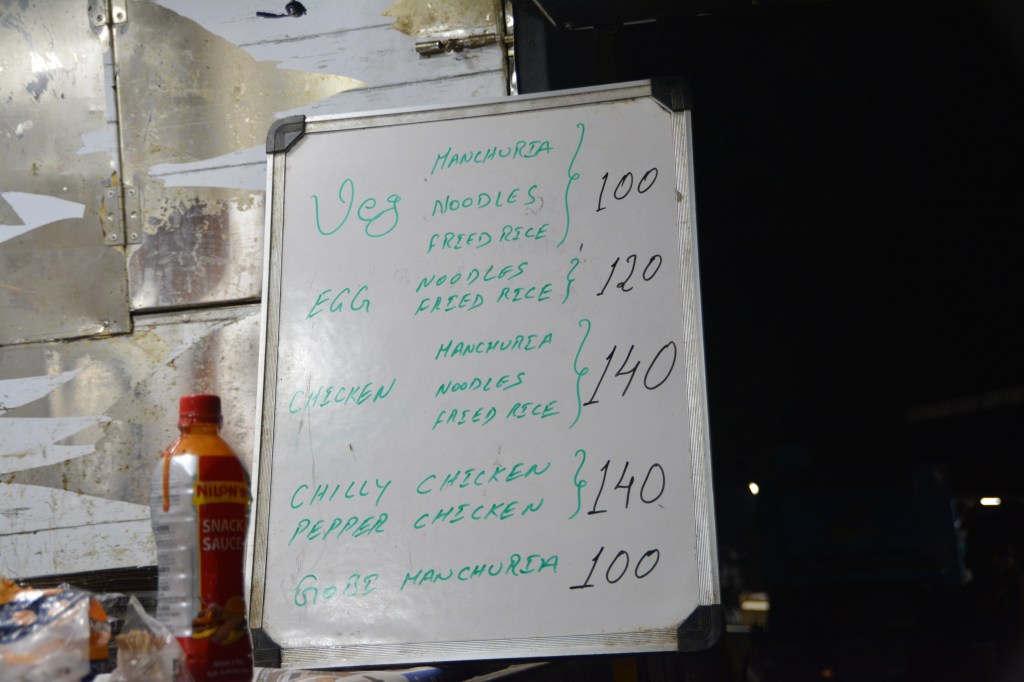 Veg MANCHURIA
NOODLES 100
FRIED RICE
EGG NOODLES 120
FRIED RICE
MANCHURIA
CHICKEN NOODLES 140
FRIED RICE
CHILLY CHICKEN 140
PEPPER CHICKEN
GOBI MANCHURIA 100
NILON'S
SNACK
SAUCE